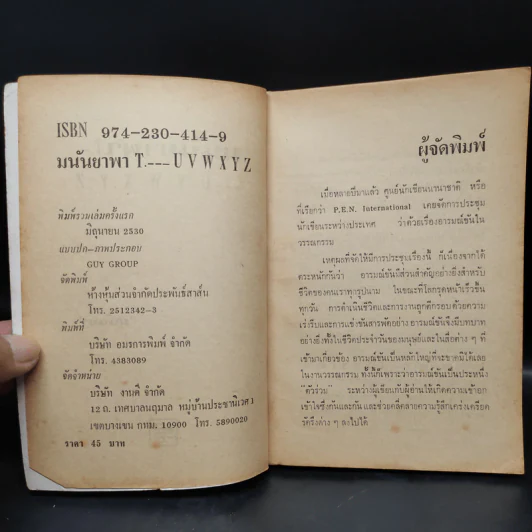 ISBN 974-230-414-9
มนันยาพา T.---U V W X Y Z
พิมพ์รวมเล่มครั้งแรก
มิถุนายน 2530
แบบปก-ภาพประกอบ
GUY GROUP
จัดพิมพ์
ห้างหุ้นส่วนจำกัดประพันธ์สาส์น
โทร. 2512342-3
พิมพ์ที่
บริษัท อมรการพิมพ์ จำกัด
โทร. 4383089
จัดจำหน่าย
บริษัท งานดี จำกัด
12 ถ. เทศบาลนฤมาล หมู่บ้านประชานิเวศ 1
เขตบางเขน กทม. 10900 โทร. 5890020
ราคา 45 บาท
ผู้จัดพิมพ์
เมื่อหลายปีมาแล้ว ศูนย์นักเขียนนานาชาติ หรือ
ที่เรียกว่า P.E.N. International เคยจัดการประชุม
นักเขียนระหว่างประเทศ ว่าด้วยเรื่องอารมณ์ขันใน
วรรณกรรม
เหตุผลที่จัดให้มีการประชุมเรื่องนี้ ก็เนื่องจากได้
ตระหนักกันว่า อารมณ์ขันมีส่วนสำคัญอย่างยิ่งสำหรับ
ชีวิตของคนเราทุกรูปนาม ในขณะที่โลกรุดหน้าเร็วขึ้น
ทุกวัน การดำเนินชีวิตและการงานลุกตีกรอบด้วยความ
เร่งรีบและการแข่งขันสารพัดอย่าง อารมณ์ขันจึงมีบทบาท
อย่างยิ่งทั้งในชีวิตประจำวันของมนุษย์และในสื่อต่าง ๆ ที่
เข้ามาเกี่ยวข้อง อารมณ์ขันเป็นหลักใหญ่ที่จะขาดมิได้เลย
ในงานวรรณกรรม ทั้งนี้ก็เพราะว่าอารมณ์ขันเป็นประหนึ่ง
“ตัวร่วม” ระหว่างผู้เขียนกับผู้อ่านให้เกิดความเข้าอก
เข้าใจซึ่งกันและกัน และช่วยคลี่คลายความรู้สึกเคร่งเครียด
รัดรึงต่าง ๆ ลงไปได้